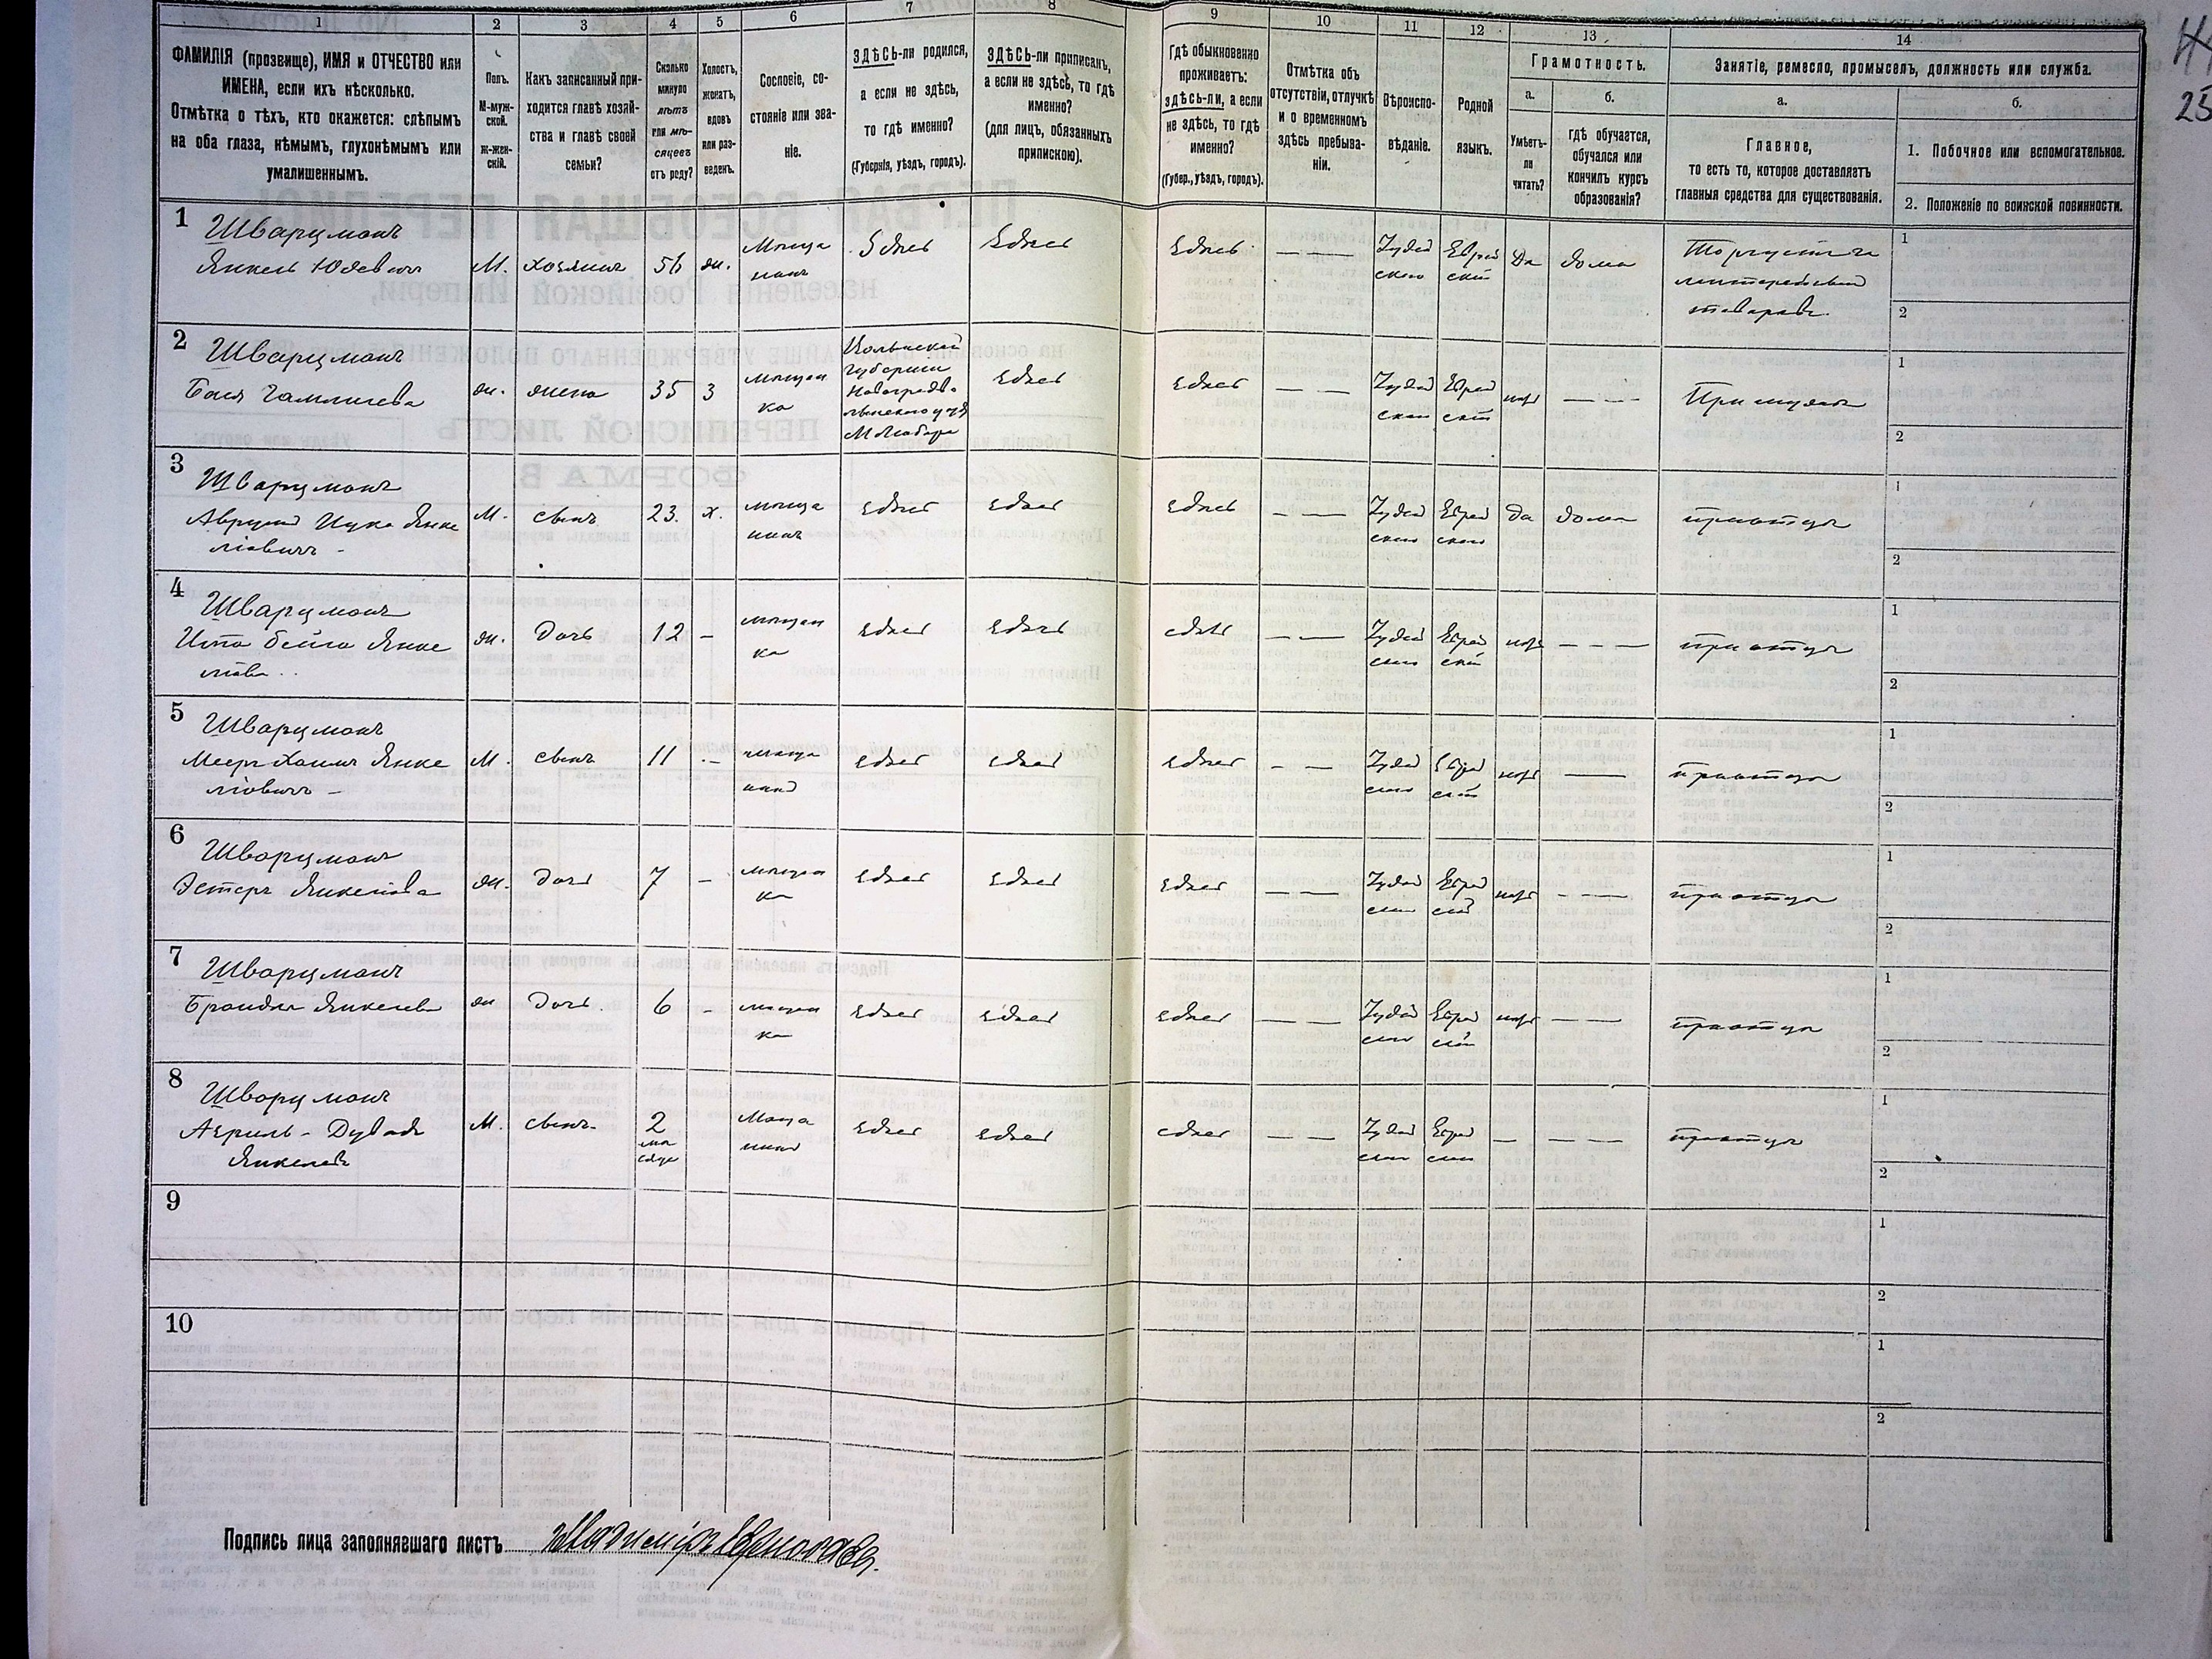 1 2 3 4 5 6 7 8 9 10 11 12 13 14
ФАМИЛІЯ (прозвище), ИМЯ и ОТЧЕСТВО или
ИМЕНА, если ихъ нѣсколько.
Отмѣтка о тѣхъ, кто окажется: слѣпымъ
на оба глаза, нѣмымъ, глухонѣмымъ или
умалишеннымъ.
Полъ.
М-муж-
ской.
Ж-жен-
скій.
Какъ записанный при-
ходится главѣ хозяй-
ства и главѣ своей
семьи?
Сколько
минуло
лѣтъ
или мѣ-
сяцевъ
отъ роду?
Холостъ,
женатъ,
вдовъ
или раз-
веденъ.
Сословіе, со-
стояніе или зва-
ніе.
ЗДѢСЬ-ли родился,
а если не здѣсь,
то гдѣ именно?
(Губернія, уѣздъ, городъ).
ЗДѢСЬ-ли приписанъ,
а если не здѣсь, то гдѣ
именно?
(для лицъ, обязанныхъ
припискою).
Гдѣ обыкновенно
проживаетъ:
здѣсь-ли, а если
не здѣсь, то гдѣ
именно?
(Губер., уѣздъ, городъ).
Отмѣтка объ
отсутствіи, отлучкѣ
и о временномъ
здѣсь пребыва-
ніи.
Вѣроиспо-
вѣданіе.
Родной
языкъ.
Грамотность.
а.
Умѣетъ-
ли
читать?
б.
гдѣ обучается,
обучался или
кончилъ курсъ
образованія?
Занятіе, ремесло, промыселъ, должность или служба.
а.
Главное,
то есть то, которое доставляетъ
главныя средства для существованія.
б.
1. Побочное или вспомогательное.
2. Положеніе по воинской повинности.
25
1
Шварцманъ
Янкель Юдевичъ
М.
хозяинъ
56
ж.
Мѣща
нинъ
Здѣсь
Здѣсь
Здѣсь
— —
Іудей
ское
Еврей
скій
Да
дома
Торгуетъ
товаромъ.
1
2
2
Шварцманъ
Бася
ж.
жена
35
З
мѣщан
ка
Волынской
губерніи
Новоградъ-
М Любаръ
Здѣсь
Здѣсь
— —
Іудей
ское
Еврей
скій
нѣтъ
— —
При мужѣ
1
2
3
Шварцманъ
Аврумъ Ицко Янке
ліовичъ -
М.
сынъ
23.
х.
мѣща
нинъ
Здѣсь
Здѣсь
Здѣсь
— —
Іудей
ское
Еврей
ское
да
дома
при отцѣ
1
2
4
Шварцманъ
Ита Бейла Янке
ліова
ж.
дочь
12
—
мѣщан
ка
Здѣсь
Здѣсь
здѣсь
— —
Іудей
ское
Еврей
скій
нѣтъ
— — —
при отцѣ
1
2
5
Шварцманъ
Мееръ Хаимъ Янке
ліовичъ -
М.
сынъ
11
—
мѣща
нинъ
Здѣсь
Здѣсь
Здѣсь
— —
Іудей
ское
Еврей
скій
нѣтъ
—
при отцѣ
1
2
6
Шварцманъ
Эстеръ Янкеліова
ж.
дочь
7
—
мѣщан
ка
Здѣсь
Здѣсь
Здѣсь
— —
Іудей
ское
Еврей
скій
нѣтъ
— — —
при отцѣ
1
2
7
Шварцманъ
Брандля Янкелева
ж
дочь.
6
—
мѣщан
ка
Здѣсь
Здѣсь
Здѣсь
— —
Іудей
ское
Еврей
скій
нѣтъ
— —
при отцѣ
1
2
8
Шварцманъ
Дувидъ
Янкелевъ
М.
сынъ
2
мѣ
сяца
Мѣща
нинъ
Здѣсь
Здѣсь
здѣсь
— —
Іудей
ское
Еврей
скій
—
— — —
при отцѣ
1
2
9
1
2
10
1
2
Подпись лица заполнявшаго листъ Владиміръ